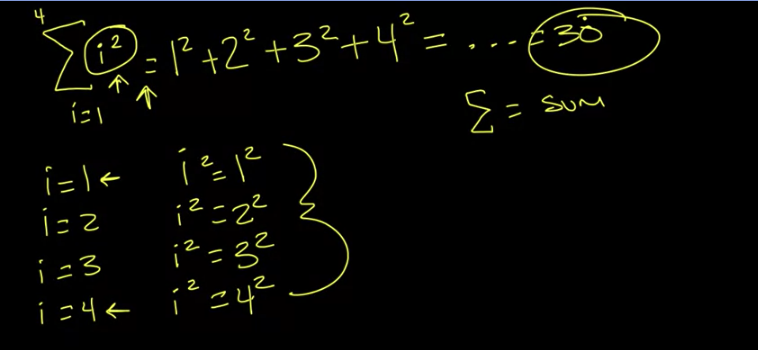 4
∑ i² = 1² + 2² + 3² + 4² = ... = 30
i=1
∑ = SUM
i=1 ← i² = 1²
i=2 i² = 2²
i=3 i² = 3²
i=4 ← i² = 4²